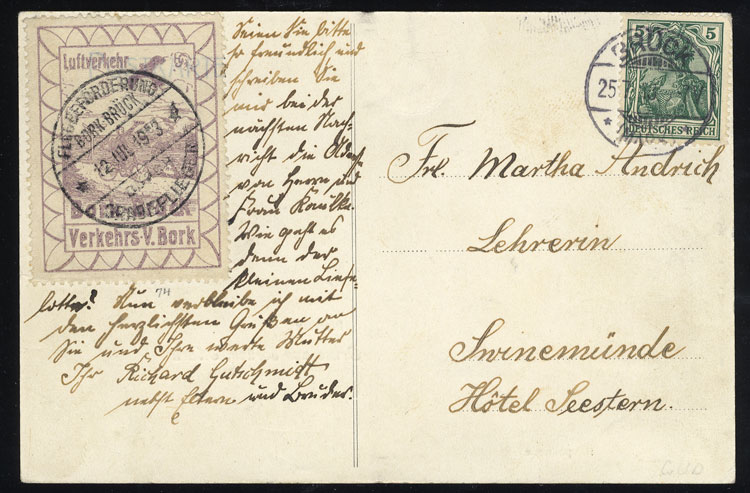 Luftverkehr
FLUGBEFÖRDERUNG
BORK-BRÜCK
12 JUL 1913
GRADEFLIEGER
Verkehrs-V. Bork
Seien Sie bitte
so freundlich und
schreiben Sie
mir bei der
nächsten Nach-
richt die Adresse
von Herrn und
Frau
Wie geht es
denn der
kleinen Liese-
lotte? Nun verbleibe ich mit
den herzlichsten Grüßen an
Sie und Ihre werte Mutter
Ihr Richard Gutschmidt
nebst Eltern und Bruder.
74
5 5
BRÜCK
25
DEUTSCHES REICH
Frl. Martha Andrich
Lehrerin
Swinemünde
Hôtel Seestern.